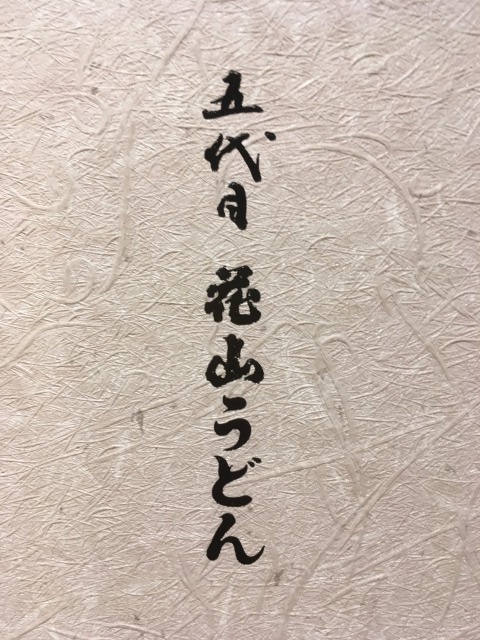 五代目 花山うどん